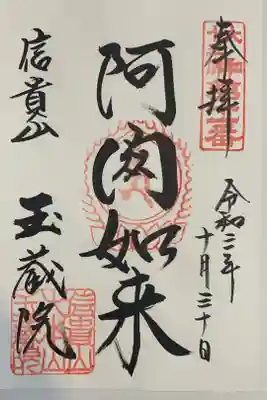 奉拝
令和三年
十月三十日
阿閦如来
信貴山
玉蔵院